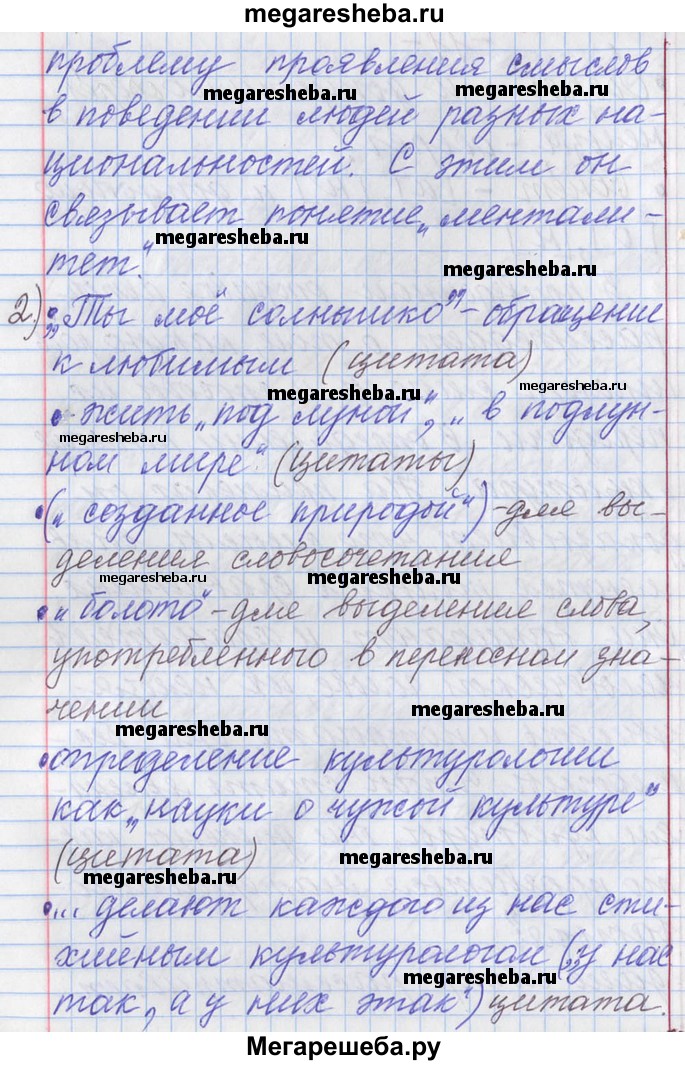 megaresheba.ru
проблему проявления смыслов
megaresheba.ru megaresheba.ru
в поведении людей разных на-
циональностей. С этим он
связывает понятие „ментали-
megaresheba.ru
тет."
megaresheba.ru
2.) „Ты моё солнышко" - обращение
к любимым (цитата)
megaresheba.ru megaresheba.ru
• - жить „под луной", „в подлун-
megaresheba.ru
ном мире". (цитаты)
• („созданное природой") - для вы-
деления словосочетание
megaresheba.ru megaresheba.ru
• „болото" - для выделения слова,
употребленного в переносном зна-
чении
megaresheba.ru megaresheba.ru
• определение культурологии
как „науки о чужой культуре"
(цитата)
megaresheba.ru
megaresheba.ru
• ... делают каждого из нас сти-
хийным культурологом („у нас
megaresheba.ru
так, а у них этак") цитата.
megaresheba.ru
Мегарешеба.ру